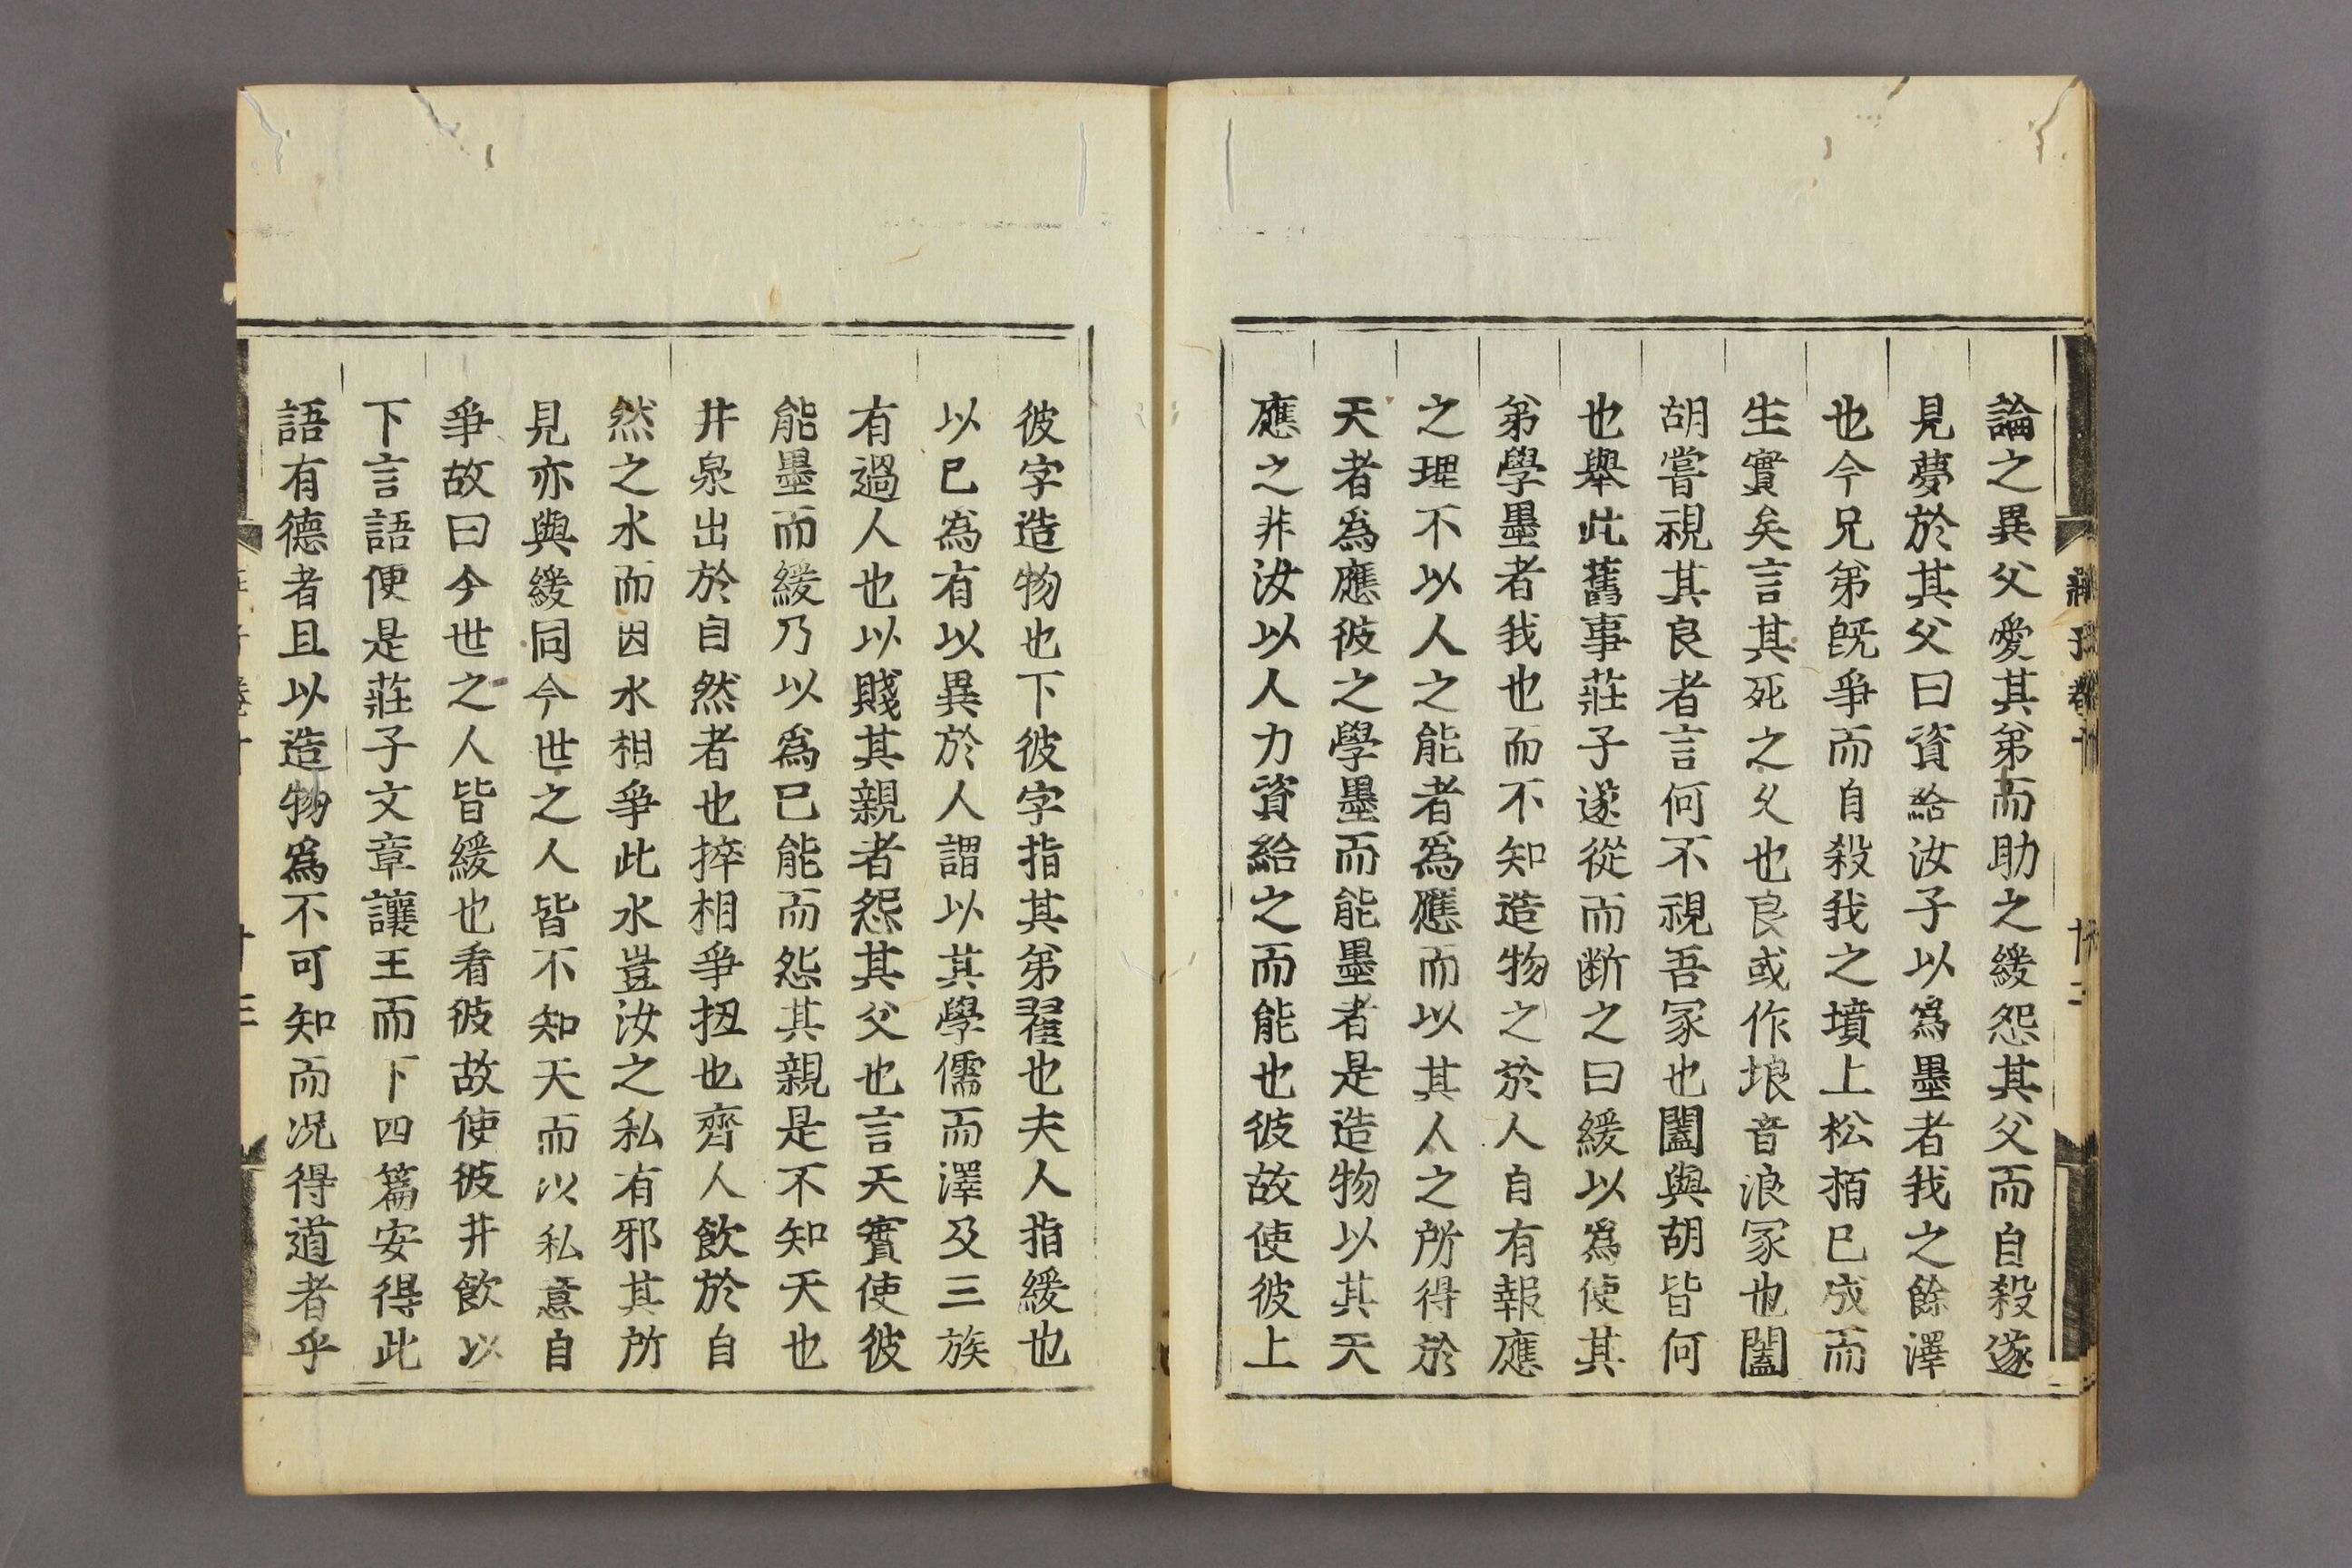 論之異父愛其弟而助之緩怨其父而自殺遂
見夢於其父曰資給汝子以爲墨者我之餘澤
也今兄弟旣爭而自殺我之墳上松栢已成而
生實矣言其死之久也良或作埌音浪冢也闔
胡嘗視其良者言何不視吾冢也闔與胡皆何
也舉此舊事莊子遂從而斷之曰緩以爲使其
弟學墨者我也而不知造物之於人自有報應
之理不以人之能者爲應而以其人之所得於
天者爲應彼之學墨而能墨者是造物以其天
應之非汝以人力資給之而能也彼故使彼上
彼字造物也下彼字指其弟翟也夫人指緩也
以已爲有以異於人謂以其學儒而澤及三族
有過人也以賤其親者怨其父也言天實使彼
能墨而緩乃以爲已能而怨其親是不知天也
井泉出於自然者也捽相爭扭也齊人飮於自
然之水而因水相爭此水豈汝之私有邪其所
見亦與緩同今世之人皆不知天而以私意自
爭故曰今世之人皆緩也看彼故使彼井飮以
下言語便是莊子文章讓王而下四篇安得此
語有德者且以造物爲不可知而况得道者乎